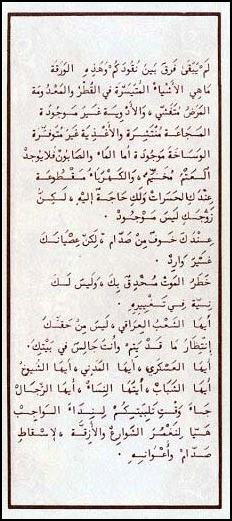 لَمْ يَبْقَىٰ فَرقٌ بَينَ نُقُودِكُمْ وَهٰذِهِ الوَرَقَة
مَاهِيَ الأشْيَاءُ المُتَيَسِّرَة فِي القُطْرِ وَالمَعْدُومَة
المَرَضُ مُتَفَشِّي، وَالأدْوِيَة غَيرُ مَوجُودَة
المَجَاعَة مُنْتَشِرَة وَالأغْذِيَة غَيرُ مُتَوَفِّرَة
الوَسَاخَة مَوجُودَة أمَا المَاءُ وَالصَابُونُ فَلَايُوجَدُ
العَتْمُ مُخَيِّمٌ، وَالكَهْرَبَاءُ مَقْطُوعَة
عِنْدَكَ الحَسَرَاتُ وَلَكَ حَاجَةٌ إلَيهِ، لَكِنَّ
زَوْجَكِ لَيسَ مَوْجُودٌ
عِنْدَكَ خَوفٌ مِنْ صَدَّام، لَكِنْ عِصْيَانَكَ
غَيرُ وَارِدٌ
خَطَرُ المَوْتِ مُحْدِقٌ بِكَ، وَلَيسَ لَكَ
نِيَّة فِي تَغْيِيرِهِ
أيُهَا الشَعْبُ العِرَاقِي، لَيسَ مِنْ حَقِّكَ
إنتِظَارَ مَا قَدْ يَتِم، وَأنتَ جَالِسٌ فِي بَيْتِكَ
أيُهَا العَسْكَرِي، أيُهَا المَدَنِي، أيُهَا الشُيُوخُ
أيُهَا الشَبَابُ، أيَّتُهَا النِسَاءُ، أيُهَا الرِّجَالُ
جَاءَ وَقْتُ تَلْبِيَتِكُمْ لِنِدَاءِ الوَاجِبِ
هَيَا لِنَغْمُرَ الشَوَارِعَ وَالأزِقَّة، لِإسْقَاطِ
صَدَّام وَأعْوَانِهِ